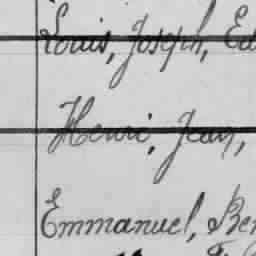 Louis, Joseph, Ed
Henri, Jean,
Emmanuel, Ber